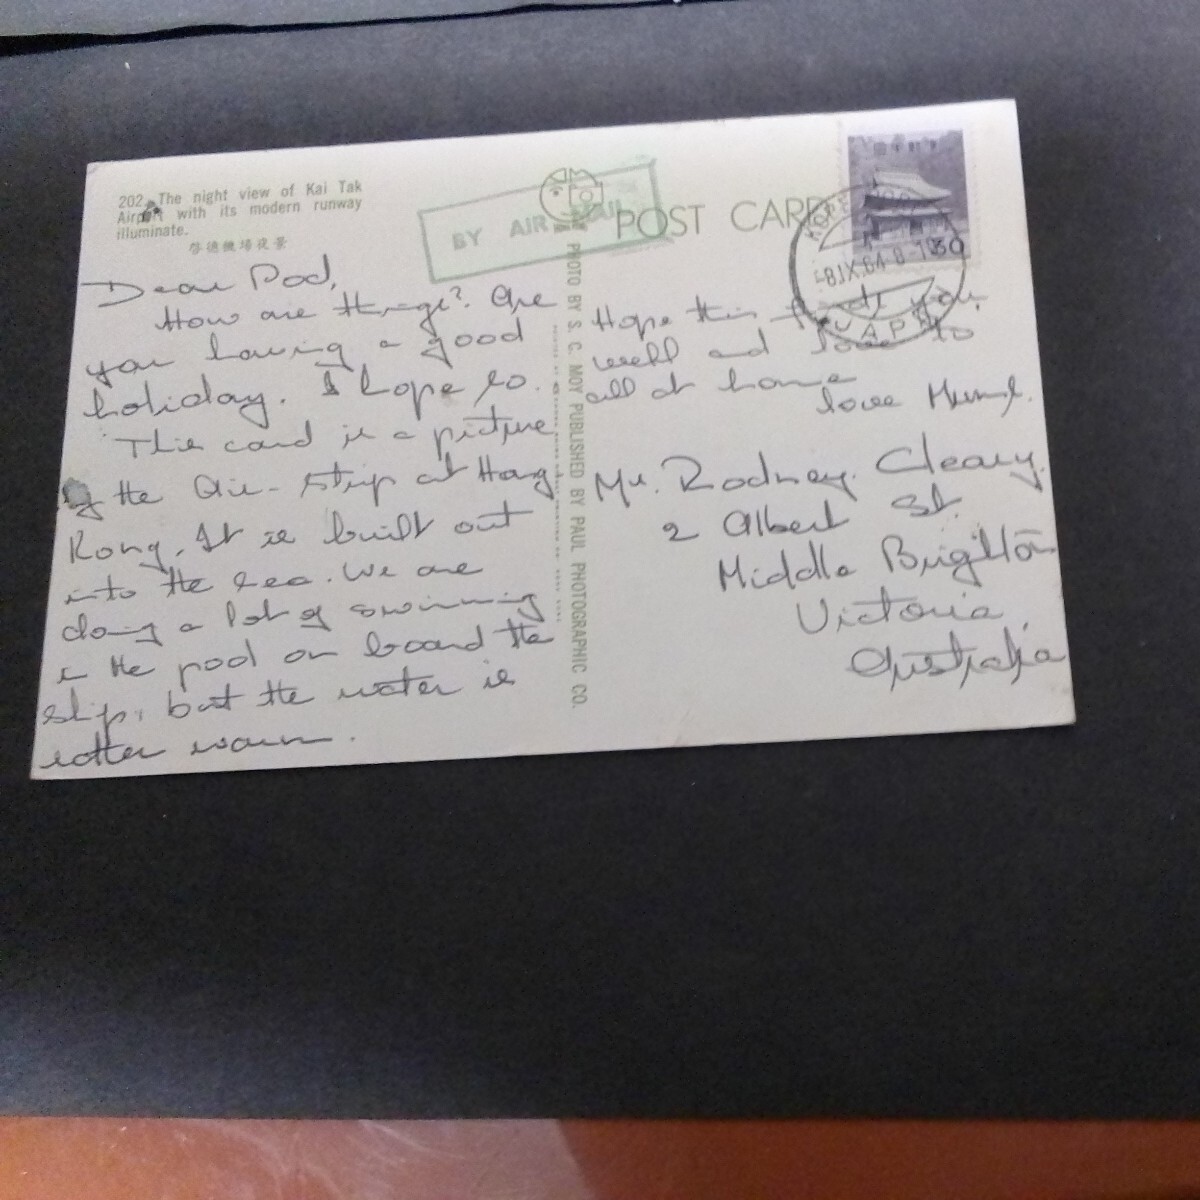 202. The night view of Kai Tak
Airport with its modern runway
illuminate.
啓德機塲夜景
BY AIR MAIL
POST CARD
KOBE PORT
8.IX.64.8-1
JAPAN
30
PHOTO BY S. C. MOY PUBLISHED BY PAUL PHOTOGRAPHIC CO.
Dear Rod,
How are things? Are
you having a good
holiday. I hope so.
This card is a picture
of the Air-strip at Hong
Kong. It is built out
into the sea. We are
doing a lot of swimming
in the pool on board the
ship, but the water is
rather warm.
Hope this finds you
well and love to
all at home
love
Mr. Rodney Cleary.
2 Albert St.
Middle Brighton
Victoria,
Australia